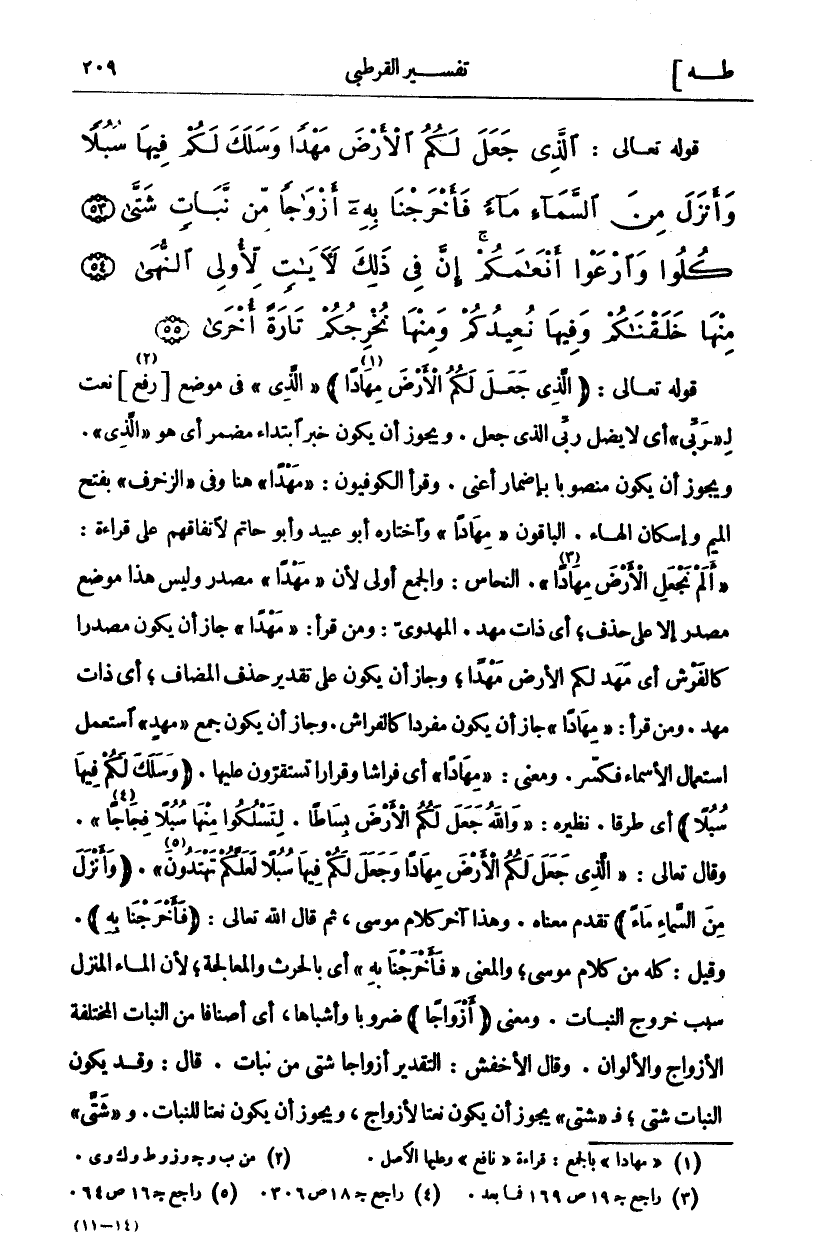 طه] تفسير القرطبي ٢٠٩
قوله تعالى : ٱلَّذِى جَعَلَ لَكُمُ ٱلْأَرْضَ مَهْدًا وَسَلَكَ لَكُمْ فِيهَا سُبُلًا
وَأَنزَلَ مِنَ ٱلسَّمَآءِ مَآءً فَأَخْرَجْنَا بِهِۦٓ أَزْوَٰجًا مِّن نَّبَاتٍ شَتَّىٰ ﴿٥٣﴾
كُلُوا وَٱرْعَوْا أَنْعَٰمَكُمْ ۗ إِنَّ فِى ذَٰلِكَ لَـَٔايَٰتٍ لِّأُولِى ٱلنُّهَىٰ ﴿٥٤﴾
مِنْهَا خَلَقْنَٰكُمْ وَفِيهَا نُعِيدُكُمْ وَمِنْهَا نُخْرِجُكُمْ تَارَةً أُخْرَىٰ ﴿٥٥﴾
قوله تعالى : ﴿ الَّذِى جَعَلَ لَكُمُ الْأَرْضَ مِهَادًا(١) ﴾ « الَّذِى » فى موضع [رفع(٢)] نعت
لـ«ـرَبِّى» أى لا يضل ربِّى الذى جعل . ويجوز أن يكون خبر ٱبتداء مضمر أى هو «الَّذِى» .
ويجوز أن يكون منصوبا بإضمار أعنى . وقرأ الكوفيون : «مَهْدًا» هنا وفى «الزخرف» بفتح
الميم وإسكان الهاء . الباقون « مِهَادًا » وٱختاره أبو عبيد وأبو حاتم لٱتفاقهم على قراءة :
« أَلَمْ نَجْعَلِ الْأَرْضَ مِهَادًا(٣) » . النحاس : والجمع أولى لأن « مَهْدًا » مصدر وليس هذا موضع
مصدر إلا على حذف؛ أى ذات مهد . المهدوىّ : ومن قرأ : « مَهْدًا » جاز أن يكون مصدرا
كالفَرْش أى مَهَد لكم الأرض مَهْدًا؛ وجاز أن يكون على تقدير حذف المضاف ؛ أى ذات
مهد . ومن قرأ : « مِهَادًا » جاز أن يكون مفردا كالفراش . وجاز أن يكون جمع «مهد» ٱستعمل
استعمال الأسماء فكسّر . ومعنى : «مِهَادًا» أى فراشا وقرارا تستقرّون عليها . ﴿ وَسَلَكَ لَكُمْ فِيهَا
سُبُلًا ﴾ أى طرقا . نظيره : « وَاللهُ جَعَلَ لَكُمُ الْأَرْضَ بِسَاطًا . لِتَسْلُكُوا مِنْهَا سُبُلًا فِجَاجًا(٤) » .
وقال تعالى : « الَّذِى جَعَلَ لَكُمُ الْأَرْضَ مِهَادًا وَجَعَلَ لَكُمْ فِيهَا سُبُلًا لَعَلَّكُمْ تَهْتَدُونَ(٥) » . ﴿ وَأَنْزَلَ
مِنَ السَّمَاءِ مَاءً ﴾ تقدم معناه . وهذا آخر كلام موسى ، ثم قال الله تعالى : ﴿ فَأَخْرَجْنَا بِهِ ﴾ .
وقيل : كله من كلام موسى؛ والمعنى « فَأَخْرَجْنَا بِهِ » أى بالحرث والمعالجة؛ لأن الماء المنزل
سبب خروج النبات . ومعنى ﴿ أَزْوَاجًا ﴾ ضروبا وأشباها، أى أصنافا من النبات المختلفة
الأزواج والألوان . وقال الأخفش : التقدير أزواجا شتى من نبات . قال : وقد يكون
النبات شتى ؛ فـ«شتى» يجوز أن يكون نعتا لأزواج ، ويجوز أن يكون نعتا للنبات . و « شَتَّى »
(١) « مهادا » بالجمع : قراءة « نافع » وعليها الأصل . (٢) من ب و جـ و ز و ط و ك و ى .
(٣) راجع جـ ١٩ ص ١٦٩ فما بعد . (٤) راجع جـ ١٨ ص ٣٠٦ . (٥) راجع جـ ١٦ ص ٦٤ .
(١١-١٤)